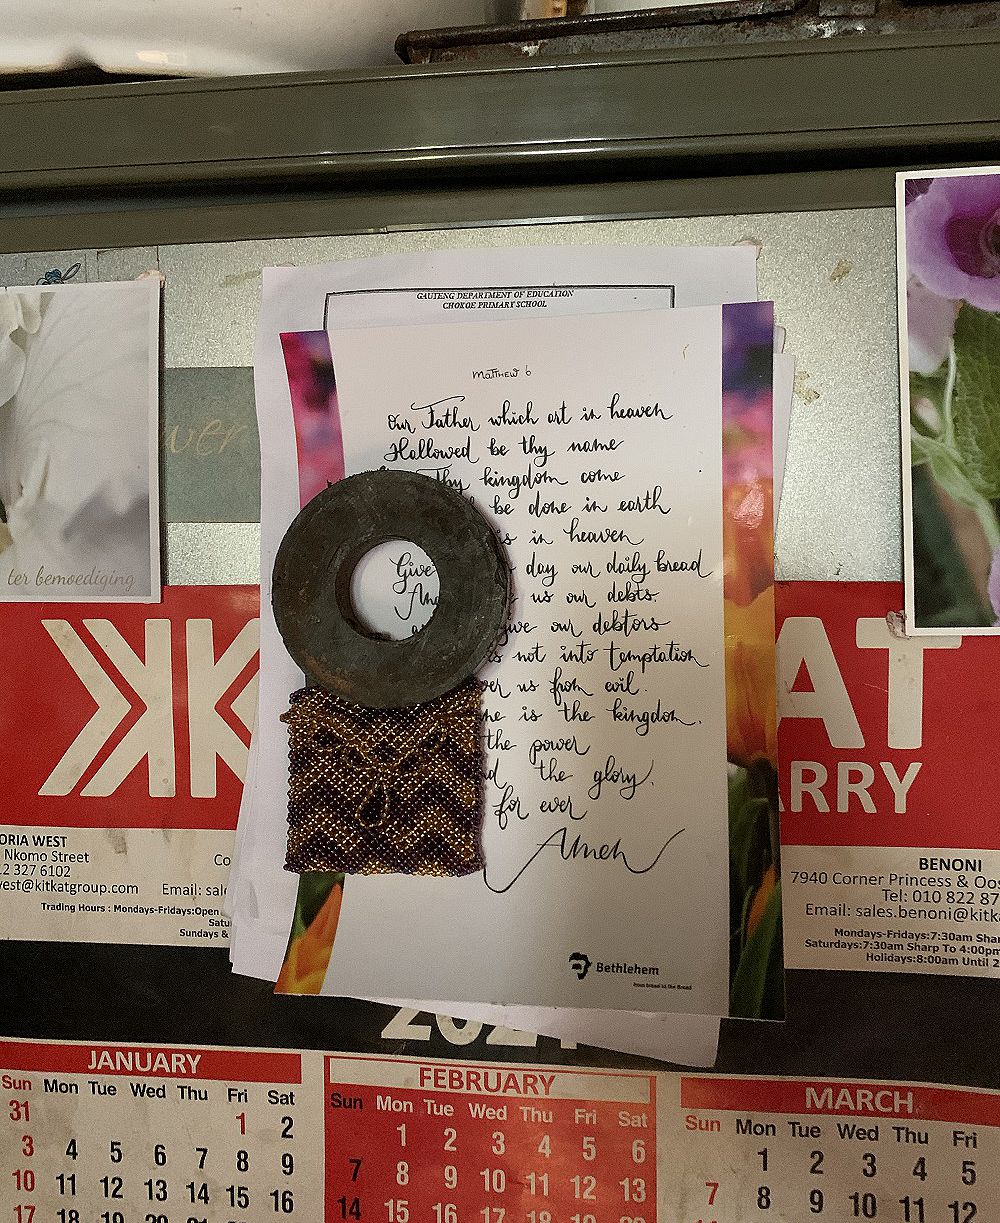 GAUTENG DEPARTMENT OF EDUCATION
CHOKOE PRIMARY SCHOOL
Matthew 6
Our Father which art in heaven
Hallowed be thy name
Thy kingdom come
be done in earth
is in heaven
Give day our daily bread
us our debts.
give our debtors
not into temptation
us from evil.
is the kingdom.
the power
the glory.
for ever
Amen
Bethlehem
ter bemoediging
KK
AT
ARRY
ORIA WEST
Nkomo Street
12 327 6102
west@kitkatgroup.com
Email: sale
Trading Hours : Mondays-Fridays:Open
Sundays &
BENONI
7940 Corner Princess & Oos
Tel: 010 822 87
Email: sales.benoni@kitk
Mondays-Fridays:7:30am Sha
Saturdays:7:30am Sharp To 4:00pm
Holidays:8:00am Until 2
2021
JANUARY
Sun Mon Tue Wed Thu Fri Sat
31 1 2
3 4 5 6 7 8 9
10 11 12 13 14 15 16
17 18 19 20
FEBRUARY
Sun Mon Tue Wed Thu Fri Sat
1 2 3 4 5 6
7 8 9 10 11 12 13
14 15 16 17 18 19
MARCH
Sun Mon Tue Wed Thu Fri
1 2 3 4 5
7 8 9 10 11 12